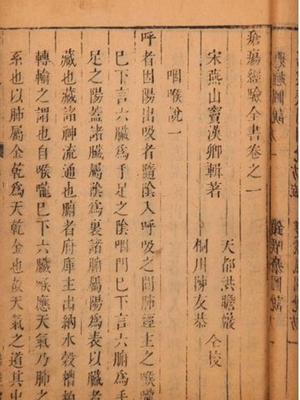 瘡瘍經驗全書卷之一
宋燕山竇漢卿輯著
天都洪瞻巖
桐川陳友恭
仝校
咽喉說一
呼者因陽出吸者隨陰入呼吸之間肺經主之喉嚨
已下言六臟為手足之陰咽門已下言六腑為手
足之陽蓋諸臟屬陰為裏諸腑屬陽為表以臟者
藏也藏諸神流通也腑者府庫主出納水穀糟粕
轉輸之謂也自喉嚨已下六臟喉應天氣乃肺之
系也以肺屬金乾為天乾金也故天氣之道其中